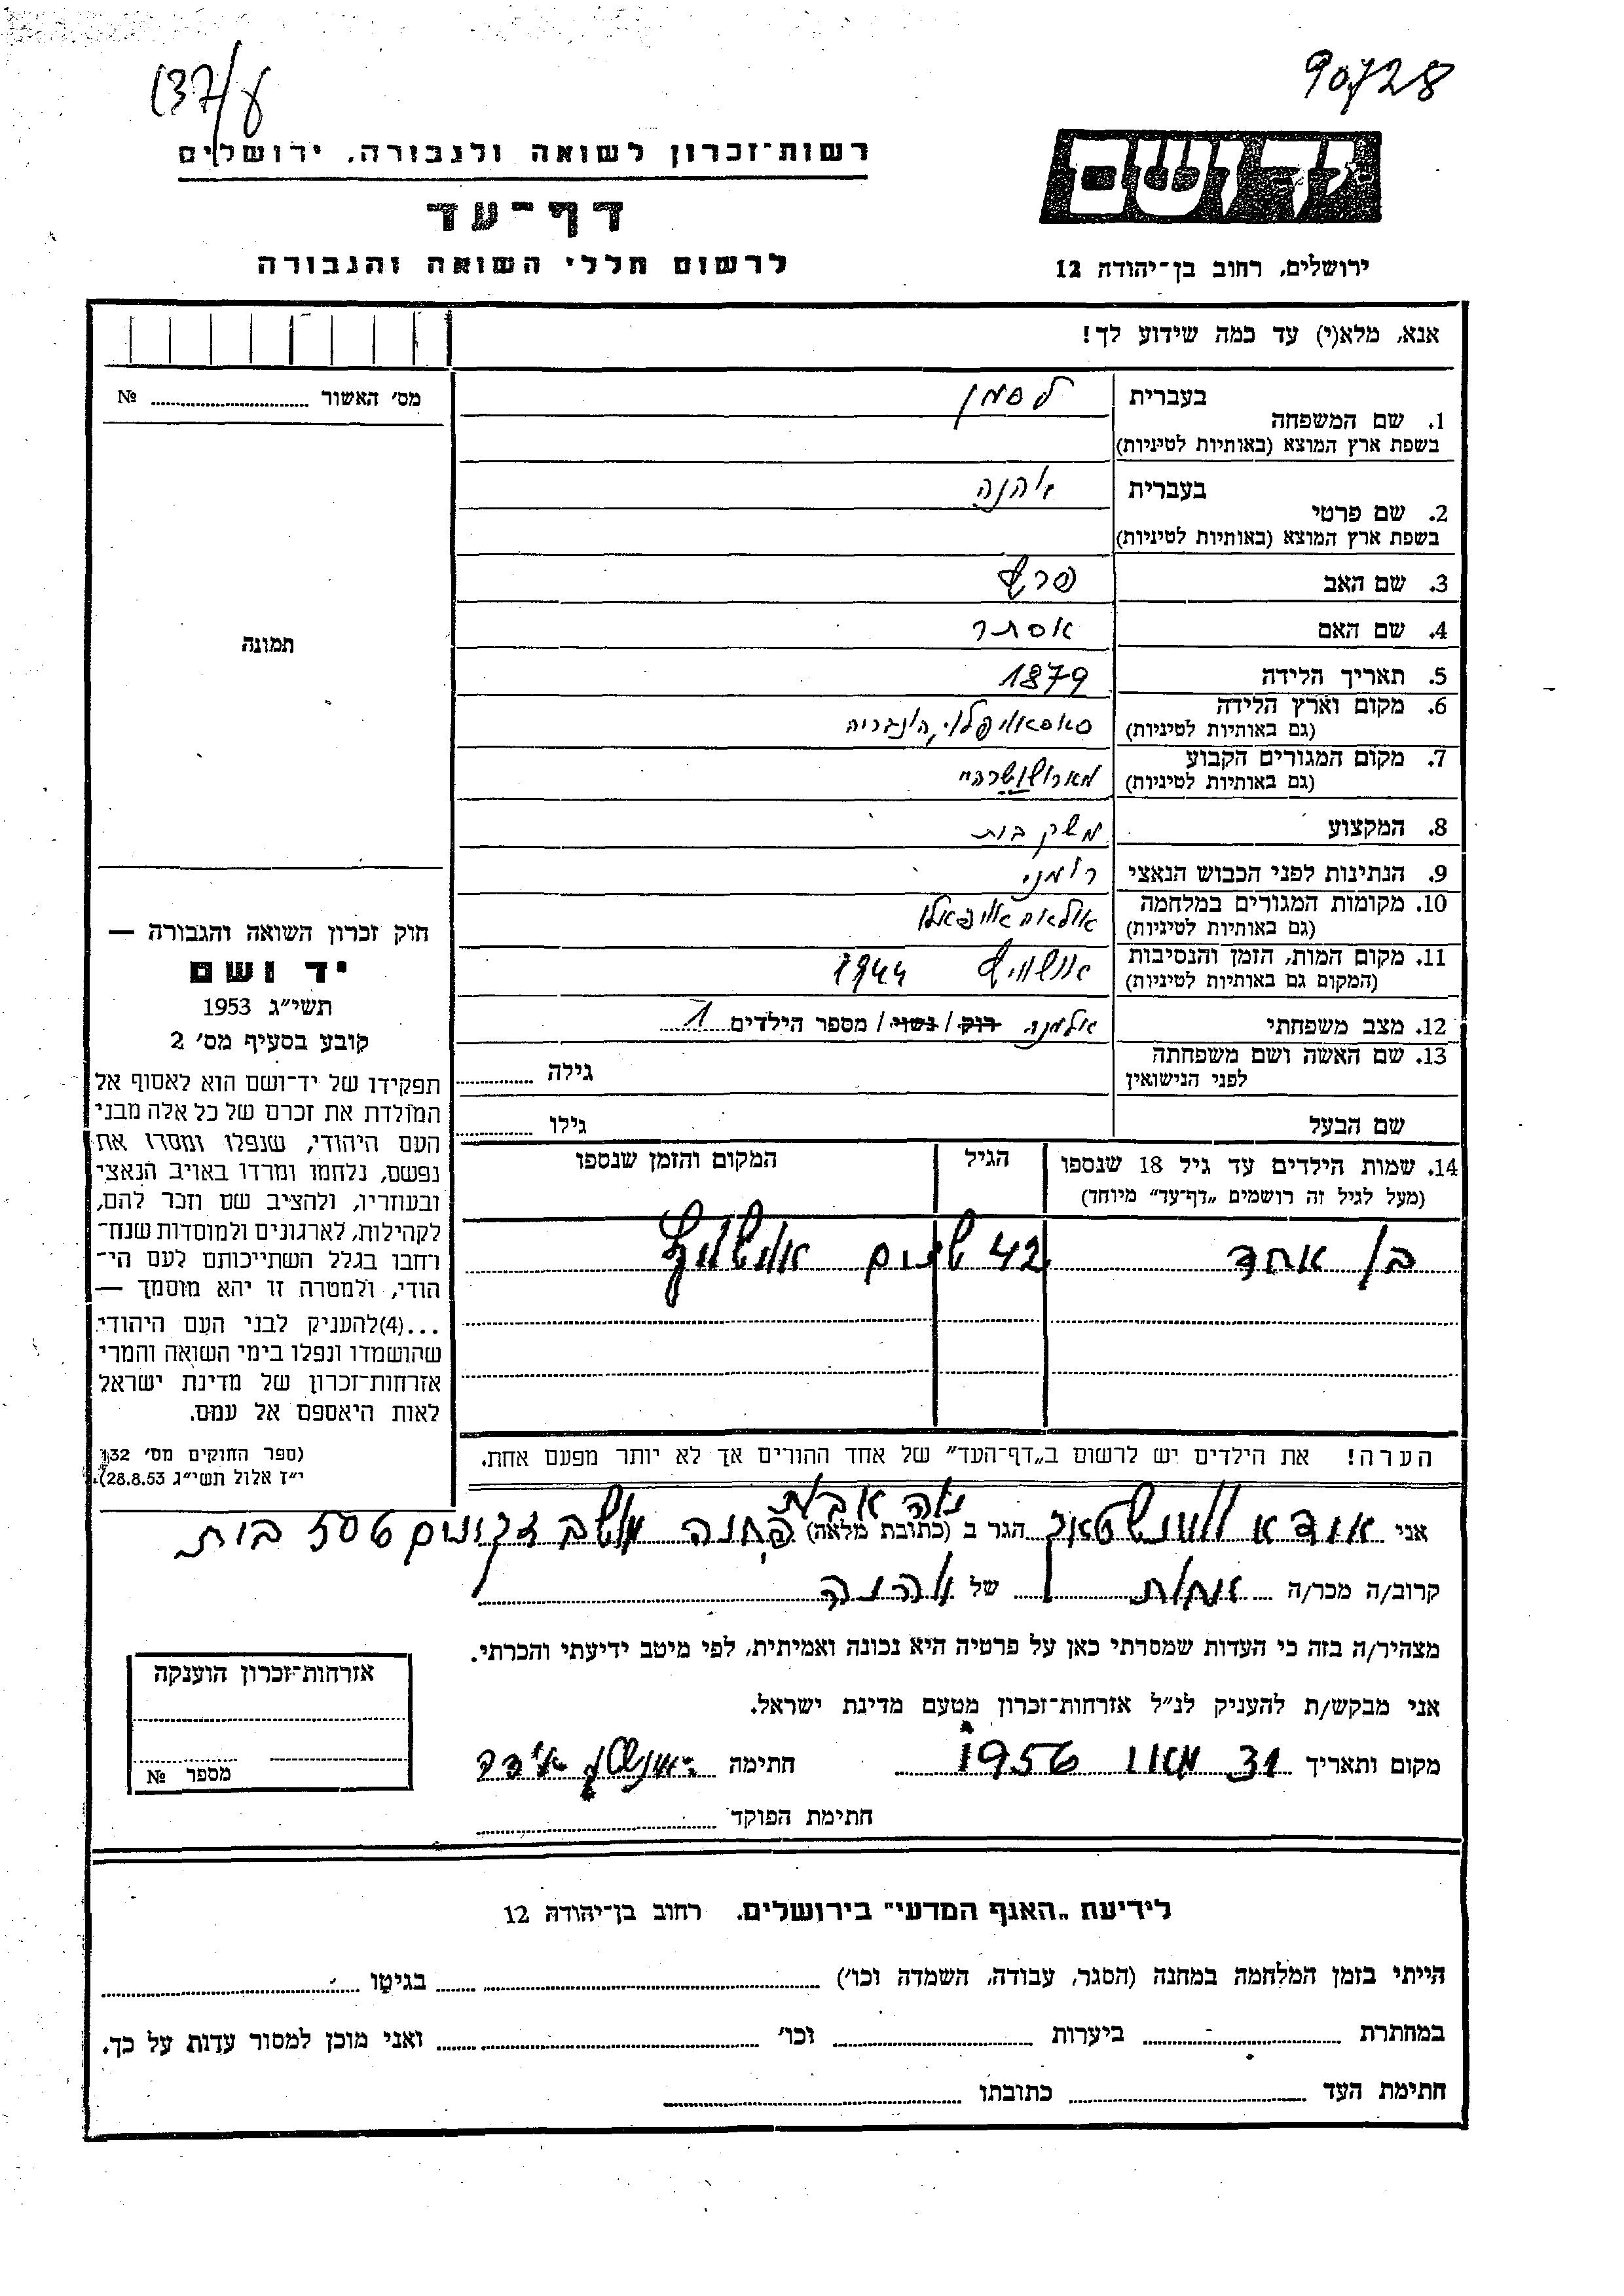 90728
137/ע
יד ושם
רשות־זכרון לשואה ולגבורה, ירושלים
דף־עד
לרשום חללי השואה והגבורה
ירושלים, רחוב בן־יהודה 12
אנא, מלא(י) עד כמה שידוע לך!
מס׳ האשור № 
1. שם המשפחה
בעברית לסמן
בשפת ארץ המוצא (באותיות לטיניות)
2. שם פרטי
בעברית
בשפת ארץ המוצא (באותיות לטיניות)
3. שם האב
4. שם האם אסתר
5. תאריך הלידה 1879
6. מקום וארץ הלידה
(גם באותיות לטיניות) הונגריה
7. מקום המגורים הקבוע
(גם באותיות לטיניות)
8. המקצוע משק בית
9. הנתינות לפני הכבוש הנאצי רומני
10. מקומות המגורים במלחמה
(גם באותיות לטיניות)
11. מקום המות, הזמן והנסיבות 1944 אושוויץ
(המקום גם באותיות לטיניות)
12. מצב משפחתי אלמנה רוק / נשוי / מספר הילדים 1
13. שם האשה ושם משפחתה
לפני הנישואין
גילה
שם הבעל גילו
14. שמות הילדים עד גיל 18 שנספו
(מעל לגיל זה רושמים „דף־עד״ מיוחד)
הגיל
המקום והזמן שנספו
בן אחד 42 שנים אושוויץ
הערה! את הילדים יש לרשום ב„דף־העד״ של אחד ההורים אך לא יותר מפעם אחת.
אני הגר ב (כתובת מלאה)
קרוב/ה מכר/ה של
מצהיר/ה בזה כי העדות שמסרתי כאן על פרטיה היא נכונה ואמיתית, לפי מיטב ידיעתי והכרתי.
אני מבקש/ת להעניק לנ״ל אזרחות־זכרון מטעם מדינת ישראל.
מקום ותאריך 31 1956 חתימה
חתימת הפוקד
תמונה
חוק זכרון השואה והגבורה —
יד ושם
תשי״ג 1953
קובע בסעיף מס׳ 2
תפקידו של יד־ושם הוא לאסוף אל
המולדת את זכרם של כל אלה מבני
העם היהודי, שנפלו ומסרו את
נפשם, נלחמו ומרדו באויב הנאצי
ובעוזריו, ולהציב שם וזכר להם,
לקהילות, לארגונים ולמוסדות שנח־
רחבו בגלל השתייכותם לעם הי־
הודי, ולמטרה זו יהא מוסמך —
...(4)להעניק לבני העם היהודי
שהושמדו ונפלו בימי השואה והמרי
אזרחות־זכרון של מדינת ישראל
לאות היאספם אל עמם.
(ספר החוקים מס׳ 132
י״ז אלול תשי״ג 28.8.53).
אזרחות־זכרון הוענקה
מספר №
לידיעת „האגף המדעי״ בירושלים, רחוב בן־יהודה 12
הייתי בזמן המלחמה במחנה (הסגר, עבודה, השמדה וכו׳) בגיטו
במחתרת ביערות וכו׳ ואני מוכן למסור עדות על כך.
חתימת העד כתובתו